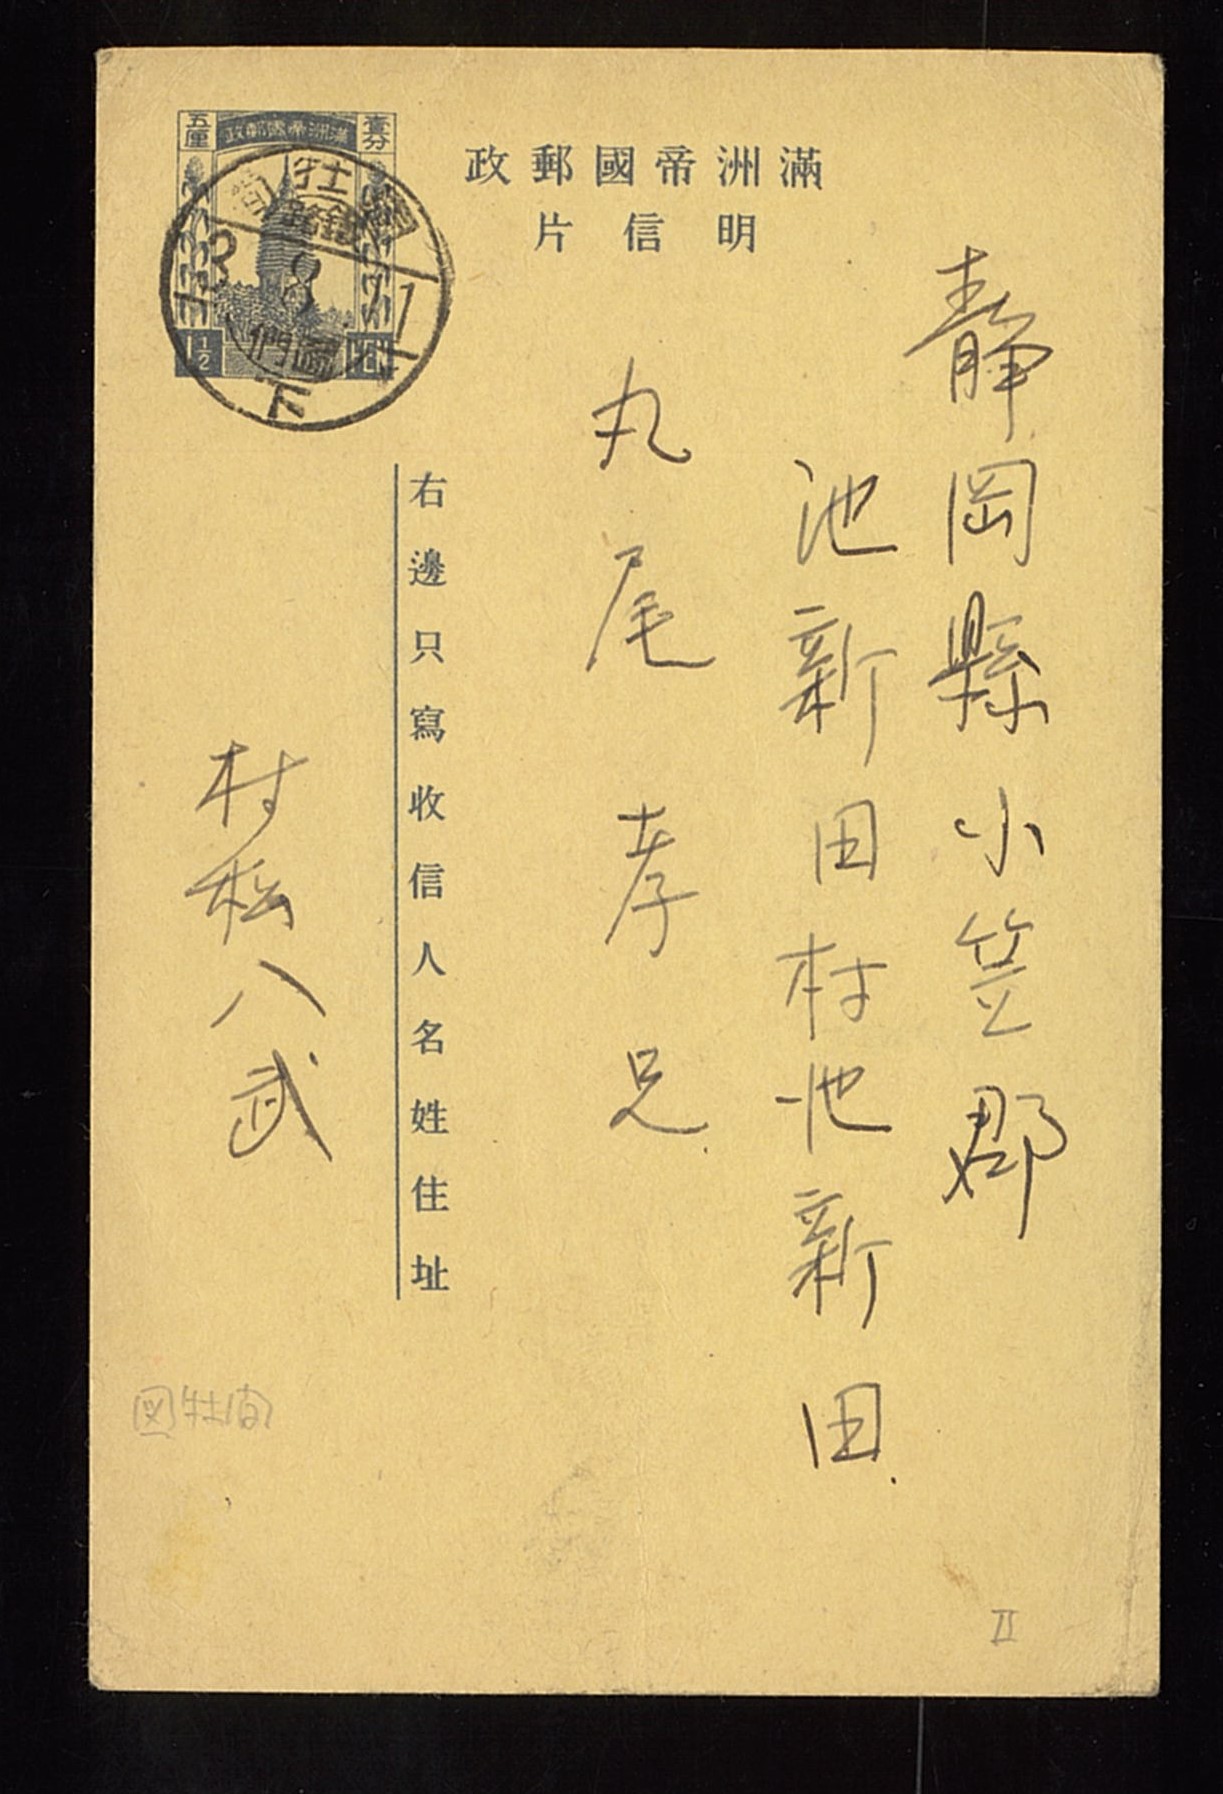 滿洲帝國郵政
明信片
壹分
五厘
滿洲帝國郵政
1½
靜岡縣小笠郡
池新田村池新田
丸尾孝兄
右邊只寫收信人名姓住址
村松八武
3 8 11
圖們
下
図牡間
II